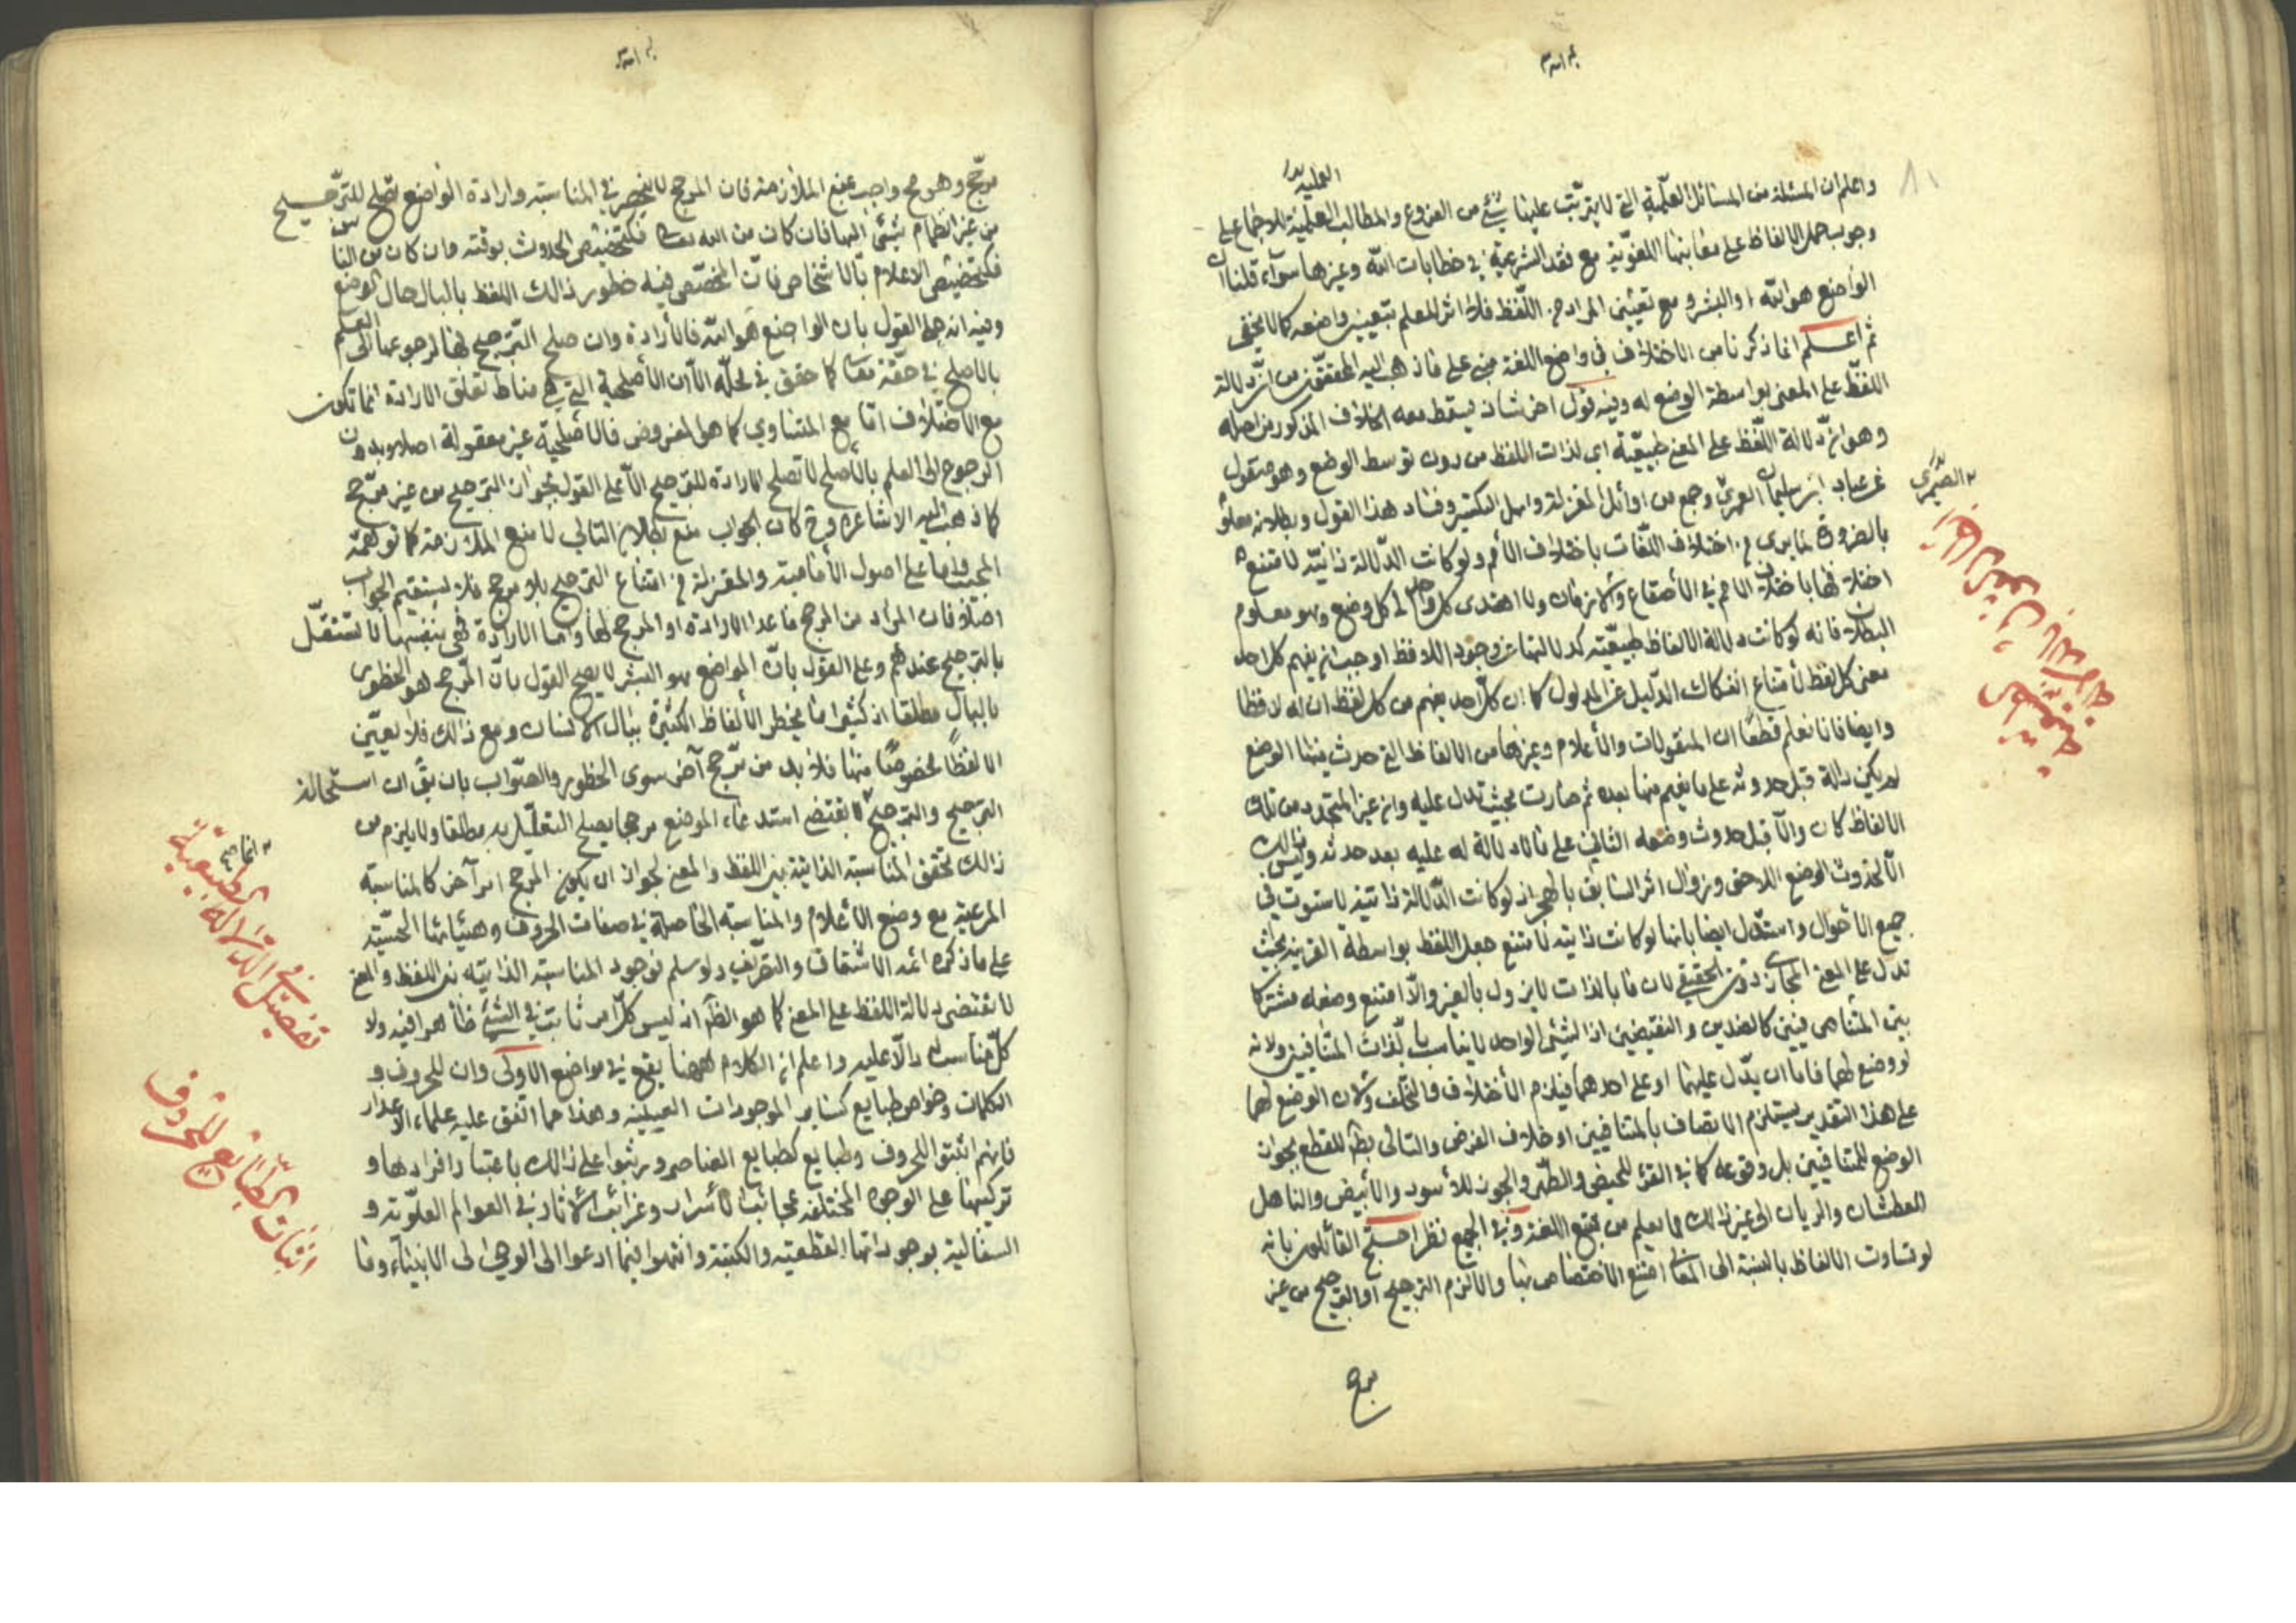 واعلم ان المسئلة من المسائل العلمية التي لا يترتب عليها شئ من الفروع والمطالب العلمية للاجماع على
العملية
وجوب حمل الالفاظ على معانيها اللغوية مع فقد الشرعية في خطابات الله وغيرها سوآء قلنا ان
الواضع هو الله او البشر و مع تعيين المراد من اللفظ فلا اثر للعلم بتعيين واضعه كما لا يخفى
ثم اعلم انما ذكرنا من الاختلاف في واضع اللغة مبنى على ما ذهب اليه المحققون من ان دلالة
اللفظ على المعنى بواسطة الوضع له وفيه قول اخر شاذ يسقط معه الخلاف المذكور من اصله
وهو ان دلالة اللفظ على المعنى طبيعية اى لذات اللفظ من دون توسط الوضع وهو منقول
عن عباد ابن سليمان وجمع من اوائل المعتزلة واهل التكسير وفساد هذا القول وبطلانه معلوم
الصيمرى
بالضرورة لما يرى من اختلاف اللغات باختلاف الأمم ولو كانت الدلالة ذاتية لامتنع
اختلافها باختلاف الامم في الأصقاع والازمان ولا اهتدى كل واحد الى كل وضع وهو معلوم
البطلان فانه لو كانت دلالة الالفاظ طبيعية كدلالتها على وجود اللافظ لوجب ان يفهم كل احد
معنى كل لفظ لأمتناع انفكاك الدليل عن المدلول كما ان كل احد يفهم من كل لفظ ان له لافظا
وايضا فانا نعلم قطعًا ان المنقولات والأعلام وغيرها من الالفاظ التي حدث فيها الوضع
لم يكن دالة قبل حدوثه على ما يفهم منها بعده ثم صارت بحيث تدل عليه وان غير المتجدد من تلك
الالفاظ كان دالا قبل حدوث وضعه الثاني على ما لا دلالة له عليه بعد حدثه وليس ذالك
الا لحدوث الوضع اللاحق وزوال اثر السابق بالهجر اذ لو كانت الدلالة ذاتية لاستوت في
جميع الأحوال واستدل ايضا بانها لو كانت ذاتية لامتنع جعل اللفظ بواسطة القرينة بحيث
تدل على المعنى المجازى دون الحقيقي لان ما بالذات لا يزول بالغير والا امتنع وضعه مشتركا
بين المتناقيين كالضدين والنقيضين اذ الشيئ الواحد لا يناسب بالذات المتنافيين ولانه
لو وضع لهما فاما ان يدل عليهما او على احدهما فيلزم الأختلاف فالتخلف ولان الوضع لهما
على هذا التقدير يستلزم الاتصاف بالمتنافيين او خلاف الفرض والتالى بط للقطع بجواز
الوضع للمتنافيين بل وقوعه كما في القرء للحيض والطهر والجون للأسود والأبيض والناهل
للعطشان والريان الى غير ذالك مما يعلم من تتبع اللغة وفي الجميع نظر احتج القائلون بانه
لو تساوت الالفاظ بالنسبة الى المعانى امتنع الأختصاص بها والا لزم الترجيح او الترجح من غير
مرجح
مرجح وهو مح واجب بمنع الملازمة فان المرجح لا ينحصر في المناسبة وارادة الواضع تصلح للترجيح
من غير انضمام شئى اليها فان كان من الله تعالى فكتخصيص الحدوث بوقته وان كان من الناس
فكتخصيص الاعلام بالاشخاص فان المخصص فيه خطور ذالك اللفظ بالبال حال الوضع
وفيه انه على القول بان الواضع هو الله فالأرادة وان صلح الترجيح بها لرجوعها الى العلم
بالأصلح في حقه تعالى كما حقق في محله الا ان الأصلحية التي هي مناط تعلق الارادة انما تكون
مع الأختلاف اما مع التساوي كما هو المفروض فالأصلحية غير معقولة اصلا وبدون
الرجوع الى العلم بالأصلح لا تصلح الارادة للترجيح الا على القول بجواز الترجيح من غير مرجح
كما ذهب اليه الاشاعرة وح كان الجواب منع بطلان التالي لا منع الملازمة كما توهمه
المجيب واما على اصول الأمامية والمعتزلة من امتناع الترجيح بلا مرجح فلا يستقيم الجواب
اصلا فان المراد من المرجح ما عدا الارادة او المرجح لها واما الارادة فهى بنفسها لا تستقل
بالترجيح عندهم وعلى القول بان الواضع هو البشر لا يصح القول بان المرجح هو الخطور
بالبال مطلقا اذ كثيرا ما يخطر الألفاظ الكثيرة ببال الانسان ومع ذالك فلا تعيين
الا لفظا مخصوصًا منها فلا بد من مرجح آخر سوى الخطور والصواب بان يق ان استحالة
الترجيح والترجح لا يقتضى استدعاء الوضع مرجحا يصلح التعليل به مطلقا ولا يلزم من
انما
ذالك تحقق المناسبة الذاتية بين اللفظ والمعنى لجواز ان يكون المرجح امرآ اخر كالمناسبة
المرعية مع وضع الأعلام والمناسبة الحاصلة في صفات الحروف وهيئاتها الحسية
على ما ذكره ائمة الاشتقاق والتصريف ولو سلم فوجود المناسبة الذاتية بين اللفظ والمعنى
لا تقتضى دلالة اللفظ على المعنى كما هو الظ اذ ليس كل امر ثابت في الشئ ظاهرا فيه ولا
كل مناسب دالا عليه واعلم ان الكلام ههنا يقع في مواضع الاولى وان للحروف و
الكلمات وخواص طبايع كساير الموجودات العينية وهذا مما اتفق عليه علماء الاعداد
فانهم اثبتوا للحروف وطبايع كطبايع العناصر ورتبوا على ذالك باعتبار افرادها و
تركيبها على الوجوه المختلفة عجائب الأسرار وغرائب الأثار في العوالم العلوية و
السفالية بوجوداتها اللفظية والكتبية وانتهوا فيما ادعوا الى الوحى الى الانبيآء وما
تفصيل في الدلالة الطبيعية
اثبات الطبائع للحروف